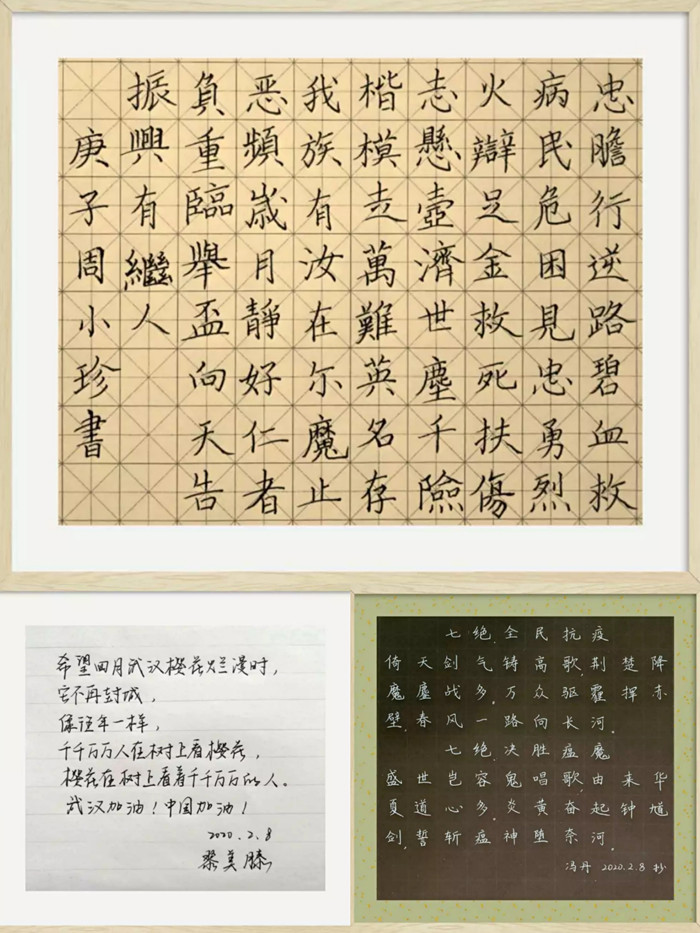 忠膽行逆路碧血救
病民危困見忠勇烈
火辯足金救死扶傷
志懸壺濟世塵千險
楷模走萬難英名存
我族有汝在尔魔止
恶頻歲月靜好仁者
負重臨舉盃向天告
振興有繼人
庚子周小珍書
希望四月武汉樱花烂漫时，
它不再封城，
像往年一样，
千千万万人在树上看樱花，
樱花在树上看着千千万万的人。
武汉加油！中国加油！
2020.2.8
美
七绝.全民抗疫
倚天剑气铸高歌,荆楚降
魔鏖战多.万众驱霾挥赤
壁.春风一路向长河.
七绝.决胜瘟魔
盛世岂容鬼唱歌,由来华
夏道心多.炎黄奋起钟馗
剑.誓斩瘟神堕奈河.
冯丹 2020.2.8 抄